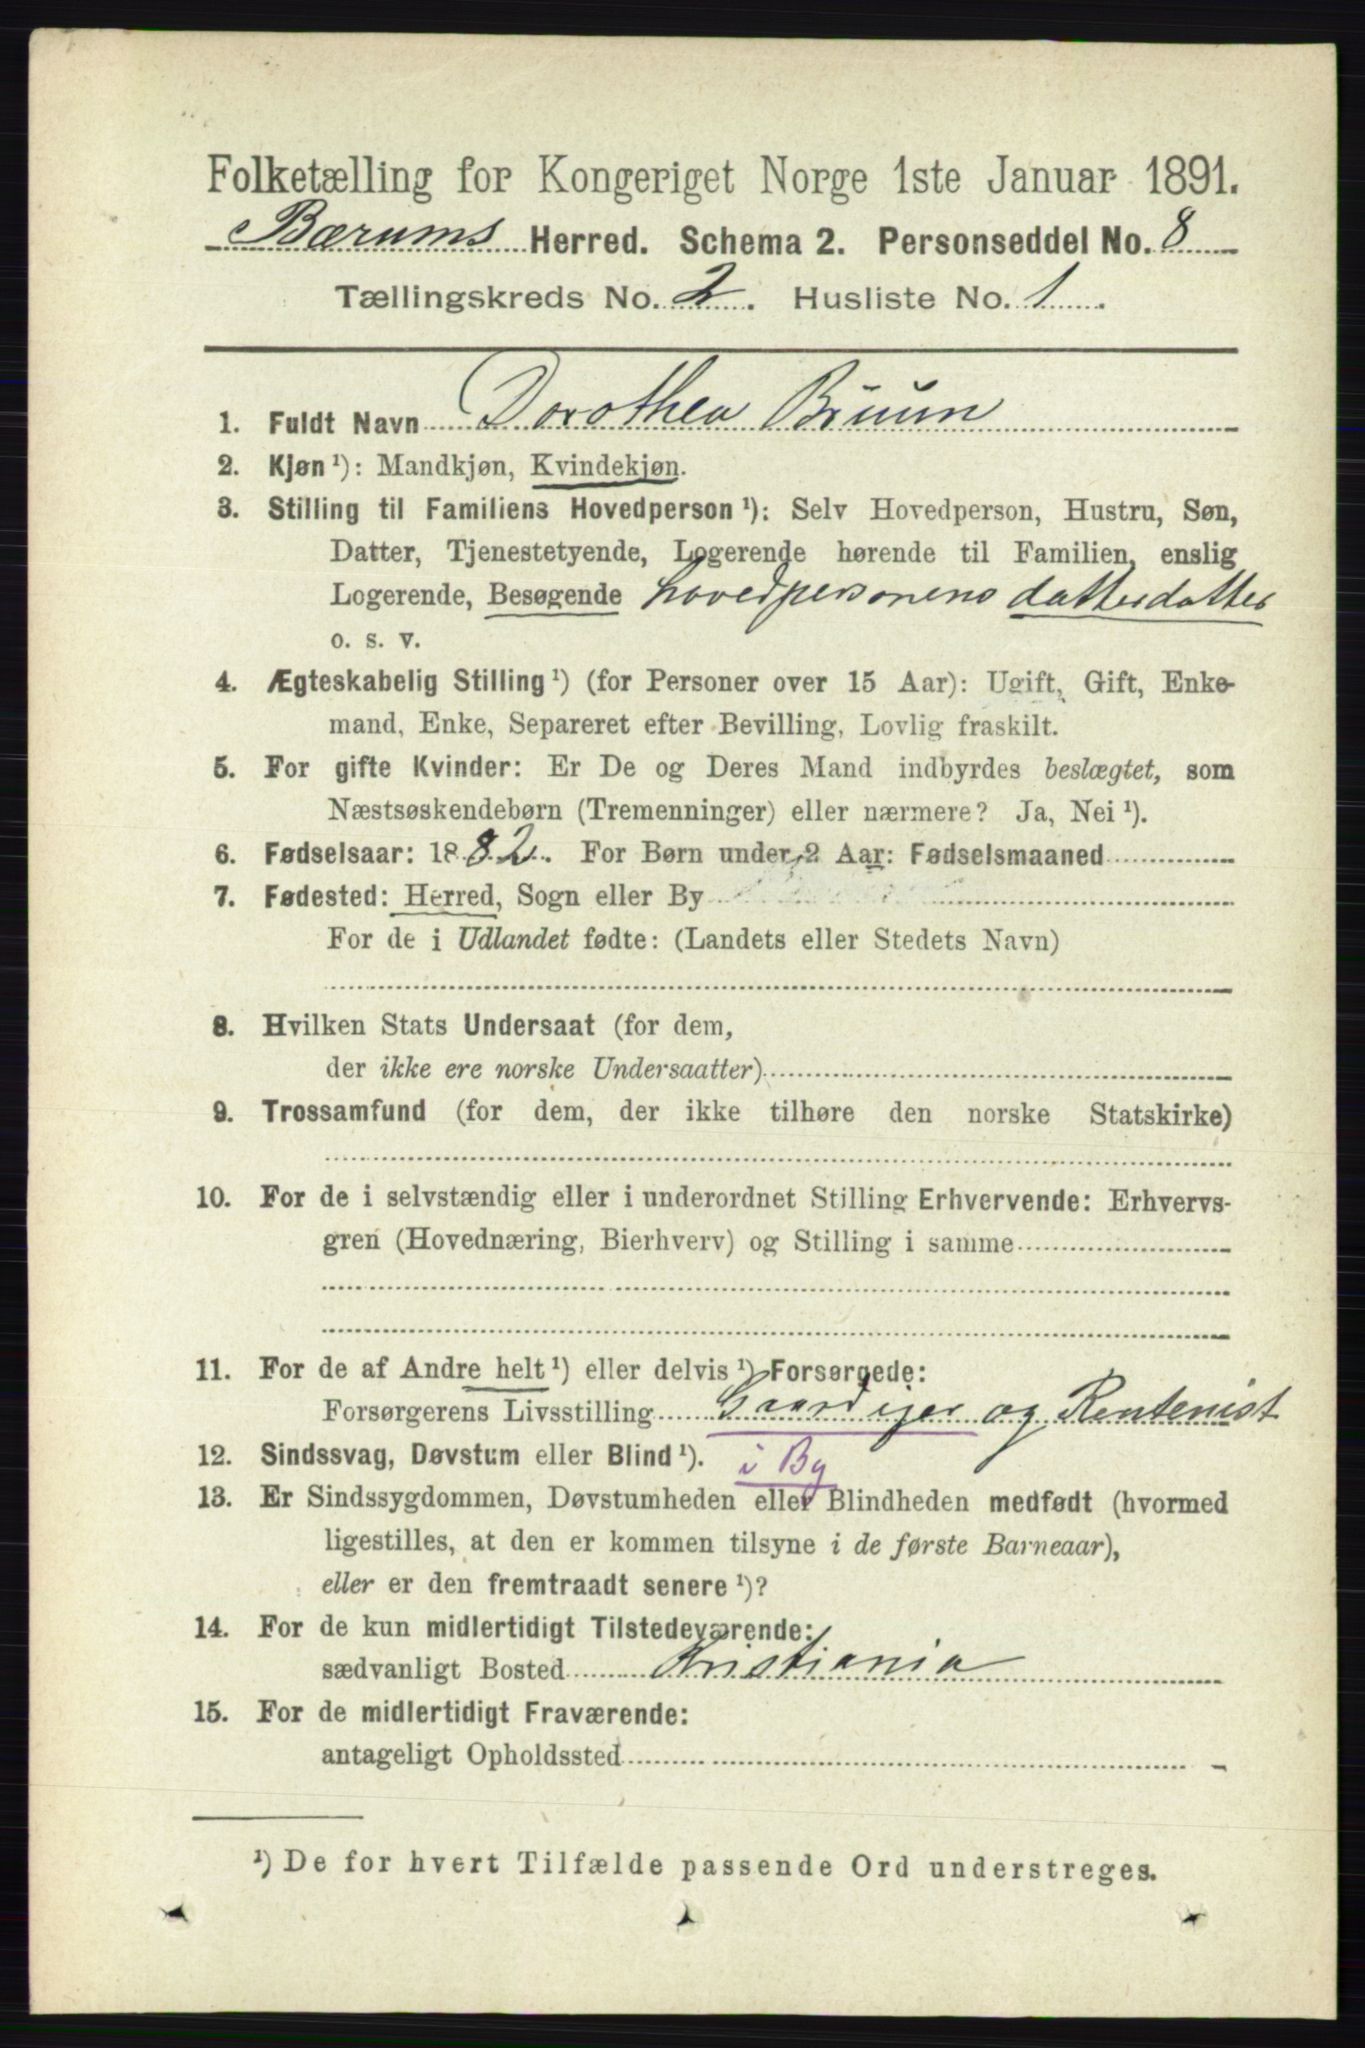 Folketælling for Kongeriget Norge 1ste Januar 1891.
Bærums Herred. Schema 2. Personseddel No. 8
Tællingskreds No. 2. Husliste No. 1.
1. Fuldt Navn Dorothea Bruun
2. Kjøn ¹): Mandkjøn, Kvindekjøn.
3. Stilling til Familiens Hovedperson ¹): Selv Hovedperson, Hustru, Søn,
Datter, Tjenestetyende, Logerende hørende til Familien, enslig
Logerende, Besøgende hovedpersonens datterdatter
o. s. v.
4. Ægteskabelig Stilling ¹) (for Personer over 15 Aar): Ugift, Gift, Enke-
mand, Enke, Separeret efter Bevilling, Lovlig fraskilt.
5. For gifte Kvinder: Er De og Deres Mand indbyrdes beslægtet, som
Næstsøskendebørn (Tremenninger) eller nærmere? Ja, Nei ¹).
6. Fødselsaar: 1882. For Børn under 2 Aar: Fødselsmaaned
7. Fødested: Herred, Sogn eller By
For de i Udlandet fødte: (Landets eller Stedets Navn)
8. Hvilken Stats Undersaat (for dem,
der ikke ere norske Undersaatter)
9. Trossamfund (for dem, der ikke tilhøre den norske Statskirke)
10. For de i selvstændig eller i underordnet Stilling Erhvervende: Erhvervs-
gren (Hovednæring, Bierhverv) og Stilling i samme
11. For de af Andre helt ¹) eller delvis ¹) Forsørgede:
Forsørgerens Livsstilling Gaardejer og Rentenist
12. Sindssvag, Døvstum eller Blind ¹). i By
13. Er Sindssygdommen, Døvstumheden eller Blindheden medfødt (hvormed
ligestilles, at den er kommen tilsyne i de første Barneaar),
eller er den fremtraadt senere ¹)?
14. For de kun midlertidigt Tilstedeværende:
sædvanligt Bosted Kristiania
15. For de midlertidigt Fraværende:
antageligt Opholdssted
¹) De for hvert Tilfælde passende Ord understreges.